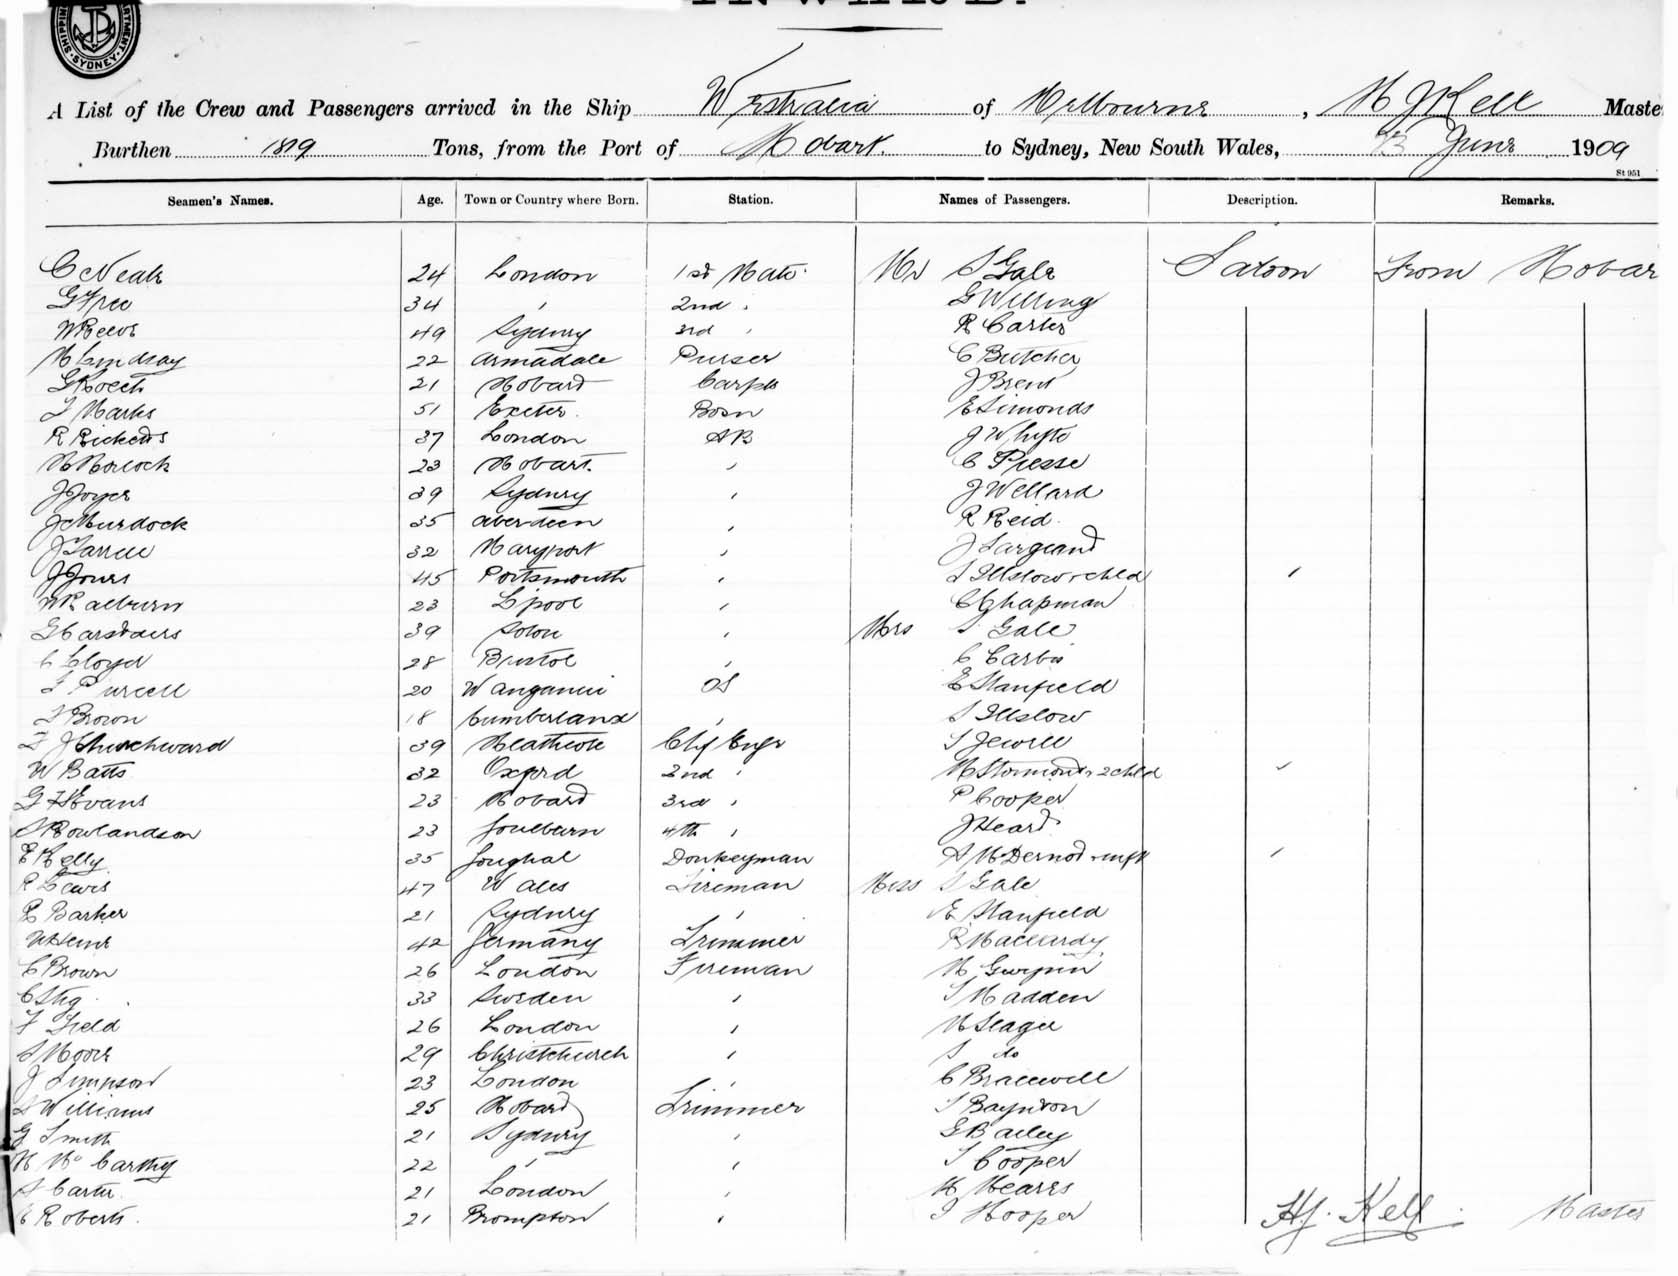 SHIPPING DEPARTMENT SYDNEY
INWARD.
A List of the Crew and Passengers arrived in the Ship Westralia of Melbourne, H J Kell Maste
Burthen 1819 Tons, from the Port of Hobart. to Sydney, New South Wales, June 1909
St 951
Seamen's Names. Age. Town or Country where Born. Station. Names of Passengers. Description. Remarks.
C Neale 24 London 1st Mate Mr S Gale Saloon From Hobar
G Free 34 " 2nd " G Willing
W Reeve 49 Sydney 3rd " R Carter
H Lindsay 22 Armadale Purser C Butcher
G Koech 21 Hobart Carptr J Brent
T Marks 51 Exeter. Bosn E Simonds
R Ricketts 37 London AB J Whyte
H Horlock 23 Hobart. " C Piesse
J Joyce 39 Sydney " J Wellard
J Murdock 35 Aberdeen " R Reid.
J Farrell 32 Maryport " J Sargeant
J Jones 45 Portsmouth " S Illslow + child "
W Raeburn 23 L'pool " C Chapman
G Marsdaers 39 Solon " Mrs S Gale
C Lloyd 28 Bristol " C Carter
T Purcell 20 Wanganui OS E Stanfield
T Brown 18 Cumberland " S Illslow
F J Churchward 39 Heathcote Chf Engr S Jewell
W Batts 32 Oxford 2nd " H Stormont + 2 child "
G H Evans 23 Hobart 3rd " P Cooper
S Rowlandson 23 Goulburn 4th " J Heard
E Kelly 35 Youghal Donkeyman A McDermod + inft "
R Lewis 47 Wales Fireman Miss S Gale
R Barker 21 Sydney " E Stanfield
W Heine 42 Germany Trimmer R Maccurdy
C Brown 26 London Fireman H Gwynn
C Stig 33 Sweden " S Madden
F Field 26 London " H Seager
S Moore 29 Christchurch " S do
J Simpson 23 London " C Bracewell
S Williams 25 Hobart Trimmer S Baynton
G Smith 21 Sydney " G Bailey
H McCarthy 22 " " S Cooper
A Carter 21 London " H Meares
E Roberts. 21 Brompton " I Hooper
H.J. Kell. Master